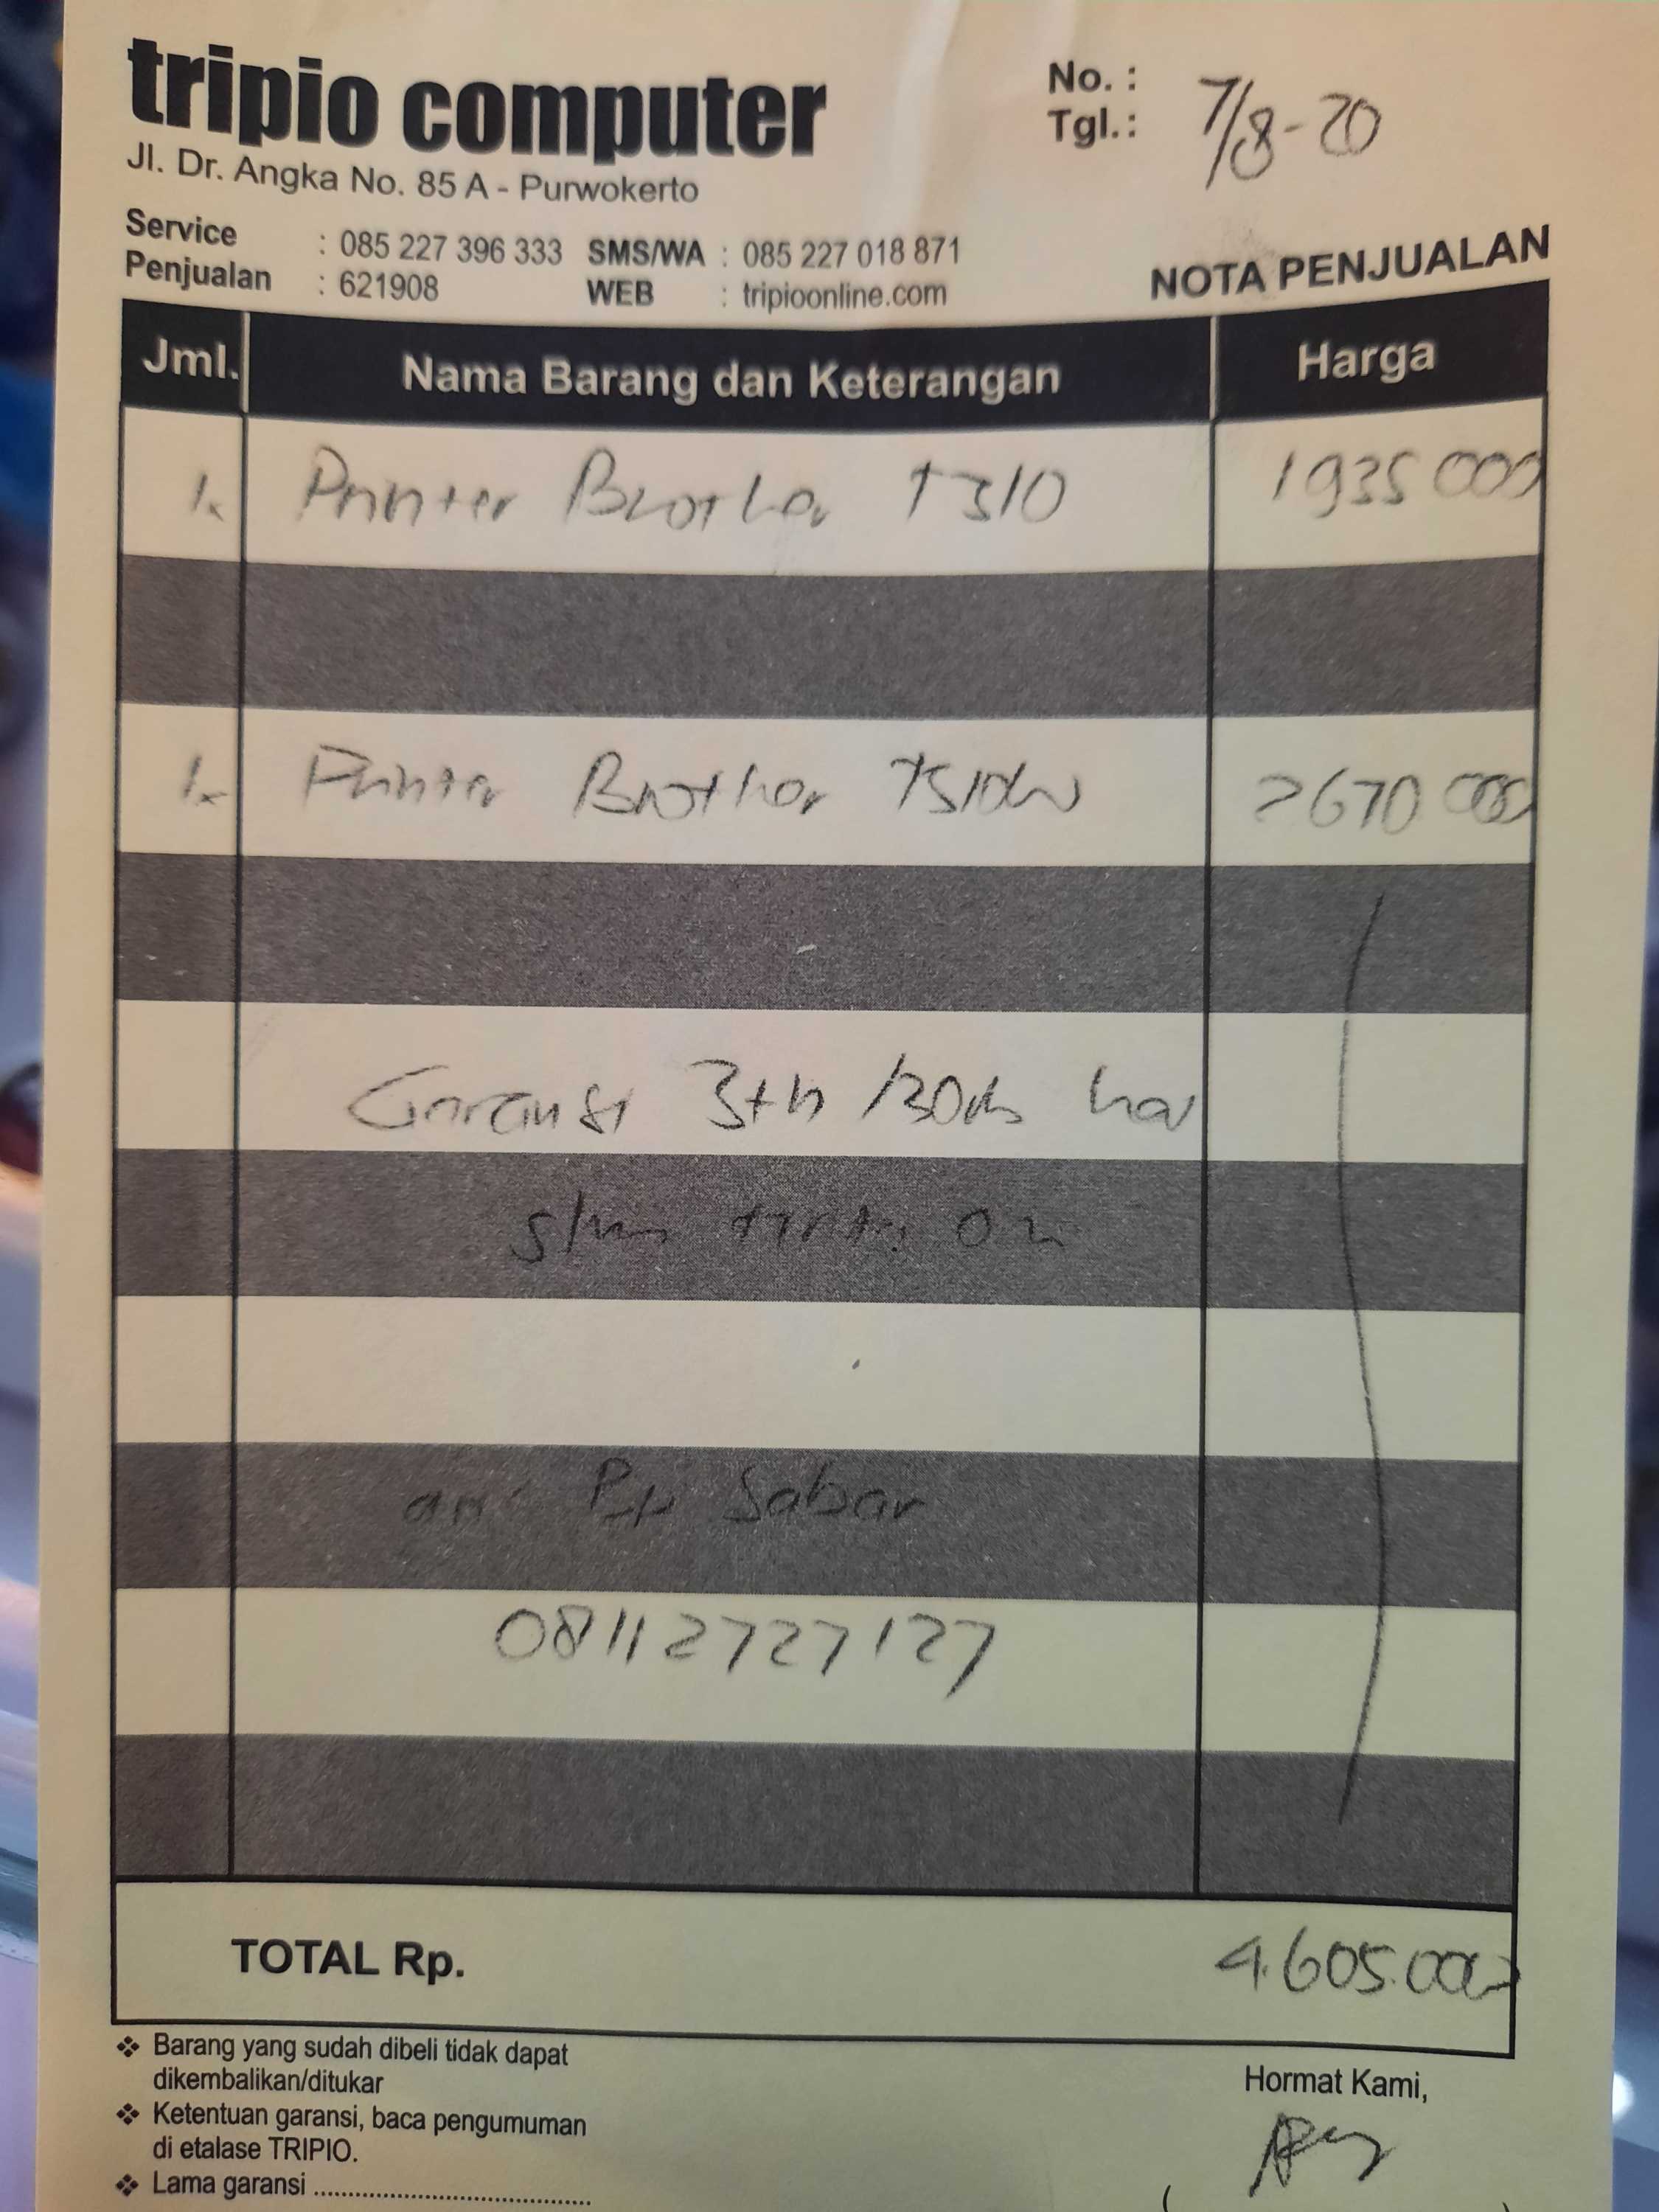 tripio computer
Jl. Dr. Angka No. 85 A - Purwokerto
No. :
Tgl.: 7/8-20
Service : 085 227 396 333 SMS/WA : 085 227 018 871
Penjualan : 621908 WEB : tripioonline.com
NOTA PENJUALAN
Jml. Nama Barang dan Keterangan Harga
1x Printer Brother T310 1935 000
1x Printer Brother T510W 2670 000
Garansi 3th /30rb
an: Pak Sabar
08112727127
TOTAL Rp. 4.605.000
❖ Barang yang sudah dibeli tidak dapat
dikembalikan/ditukar
❖ Ketentuan garansi, baca pengumuman
di etalase TRIPIO.
❖ Lama garansi ........................................
Hormat Kami,